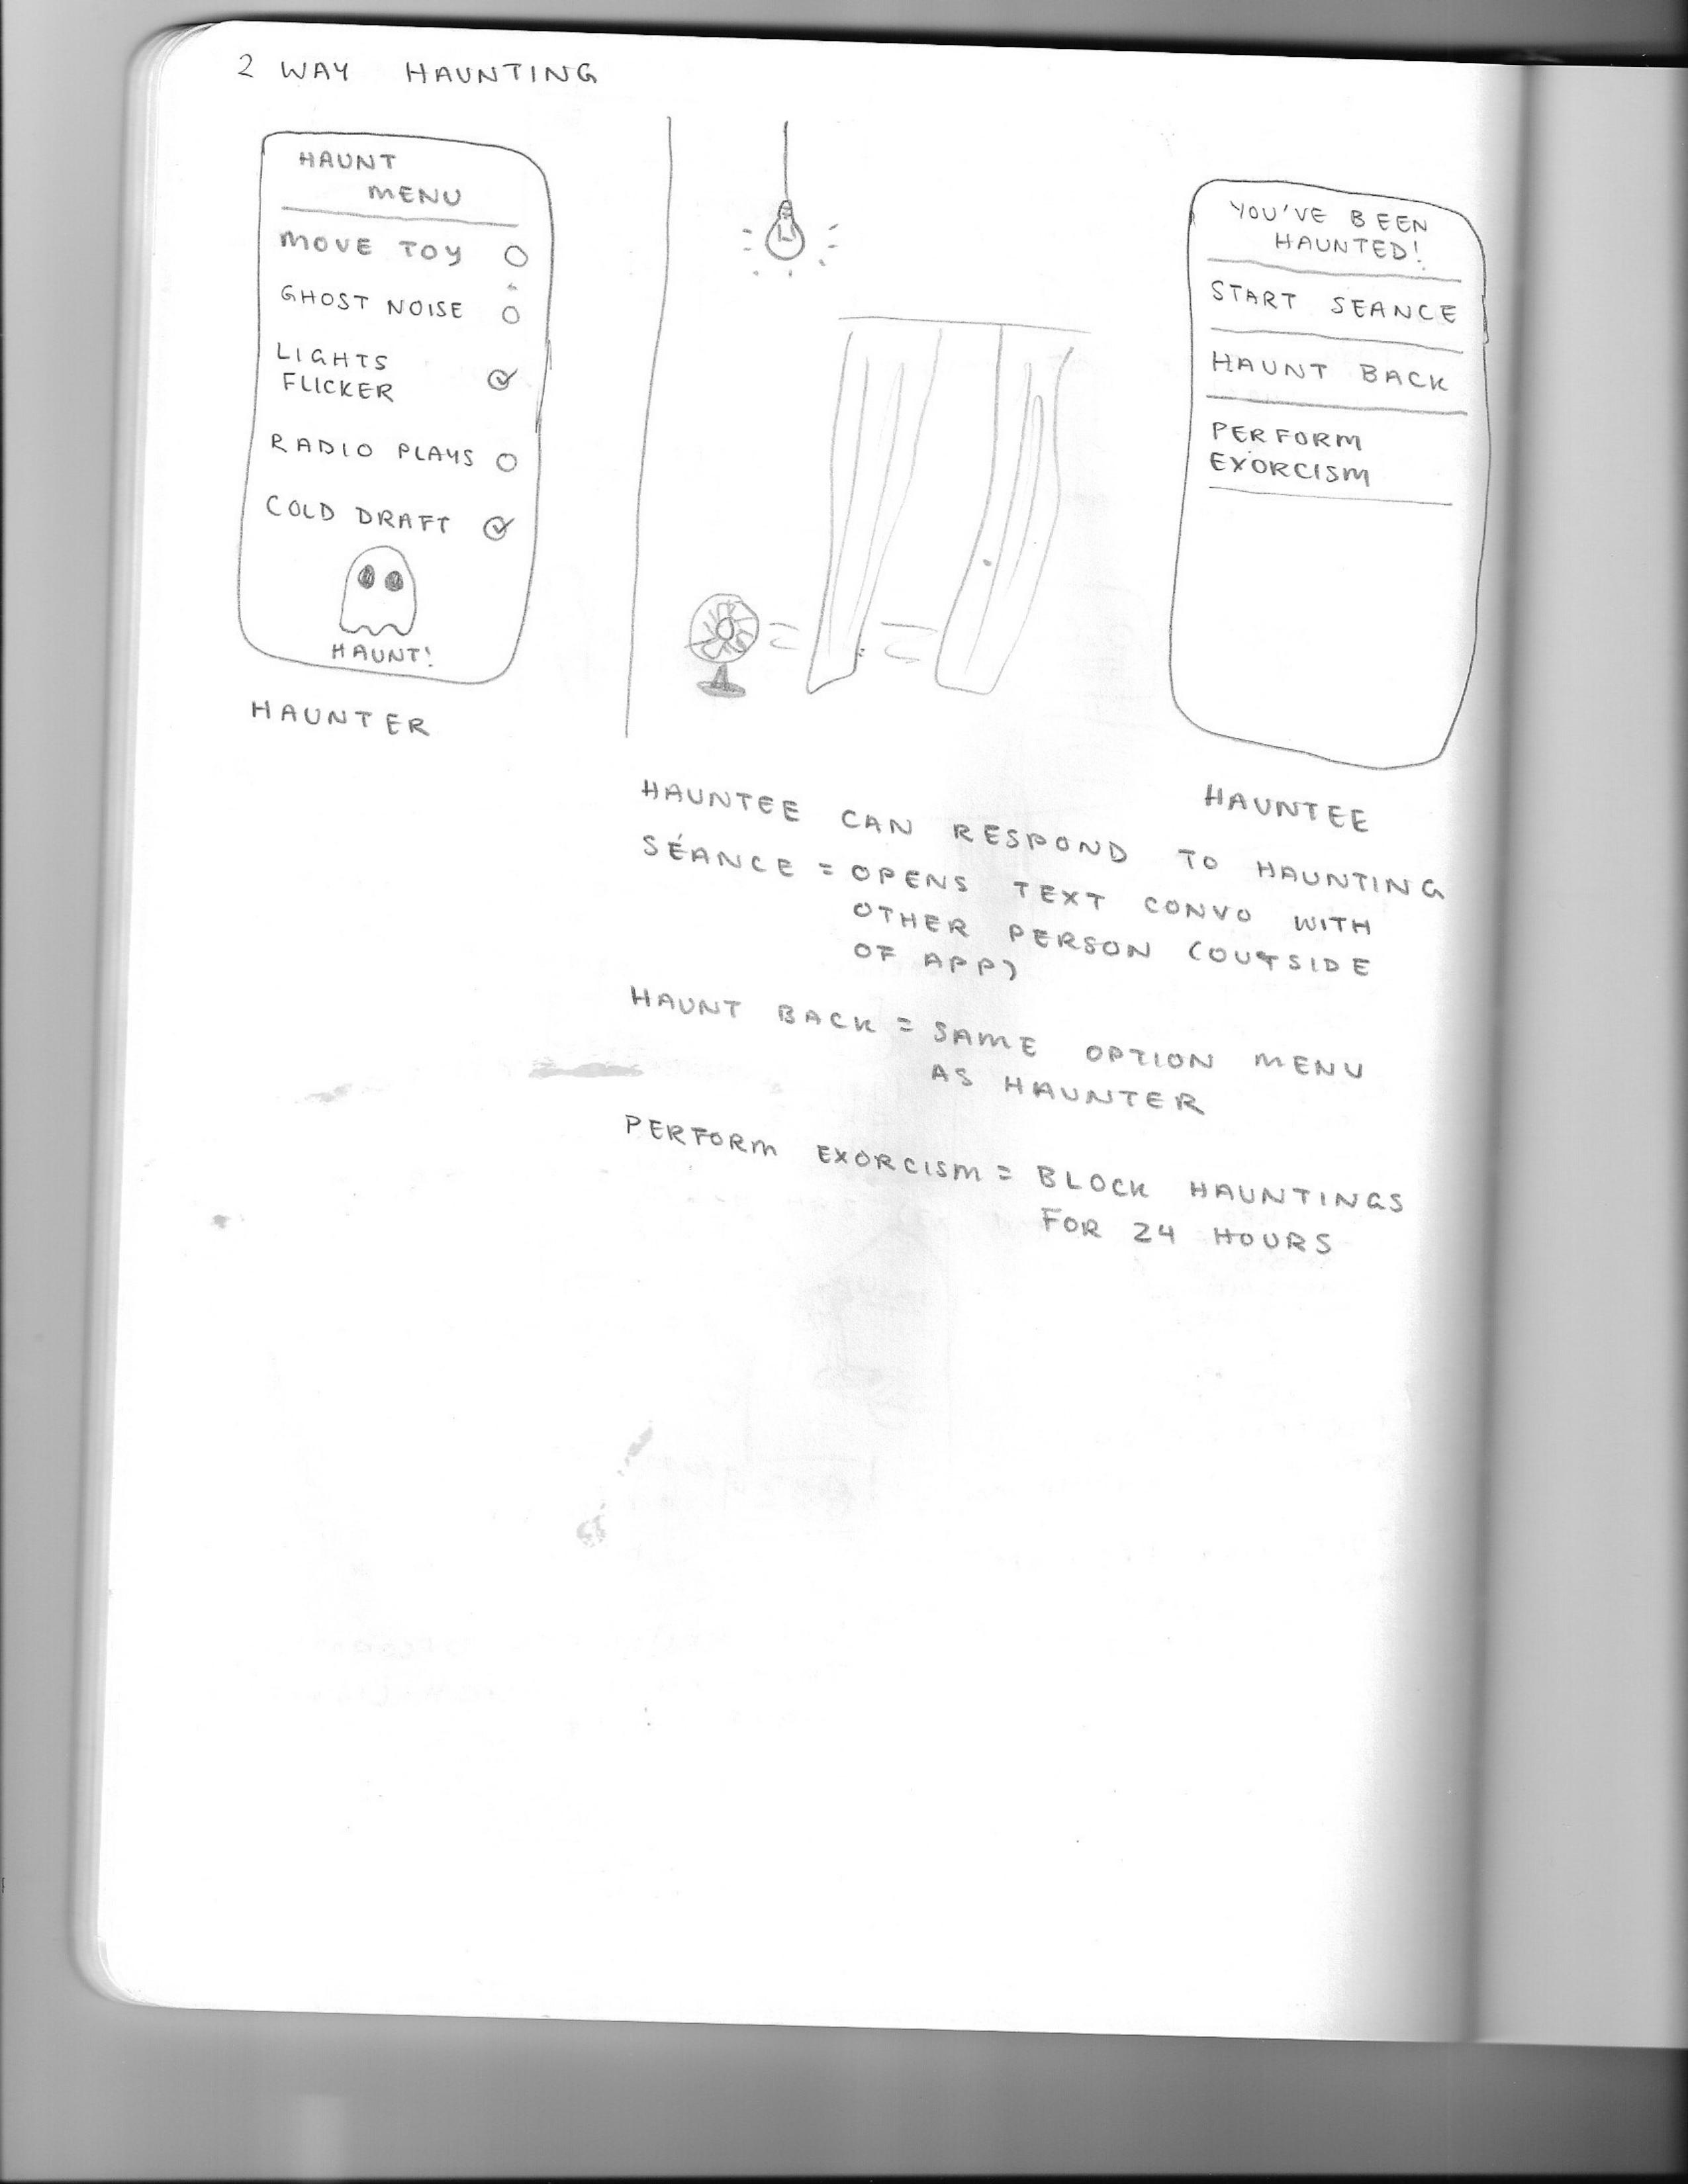 2 WAY HAUNTING
HAUNT
MENU
MOVE TOY
GHOST NOISE
LIGHTS
FLICKER
RADIO PLAYS
COLD DRAFT
HAUNT!
HAUNTER
YOU'VE BEEN
HAUNTED!
START SEANCE
HAUNT BACK
PERFORM
EXORCISM
HAUNTEE
HAUNTEE CAN RESPOND TO HAUNTING
SÉANCE = OPENS TEXT CONVO WITH
OTHER PERSON (OUTSIDE
OF APP)
HAUNT BACK = SAME OPTION MENU
AS HAUNTER
PERFORM EXORCISM = BLOCK HAUNTINGS
FOR 24 HOURS